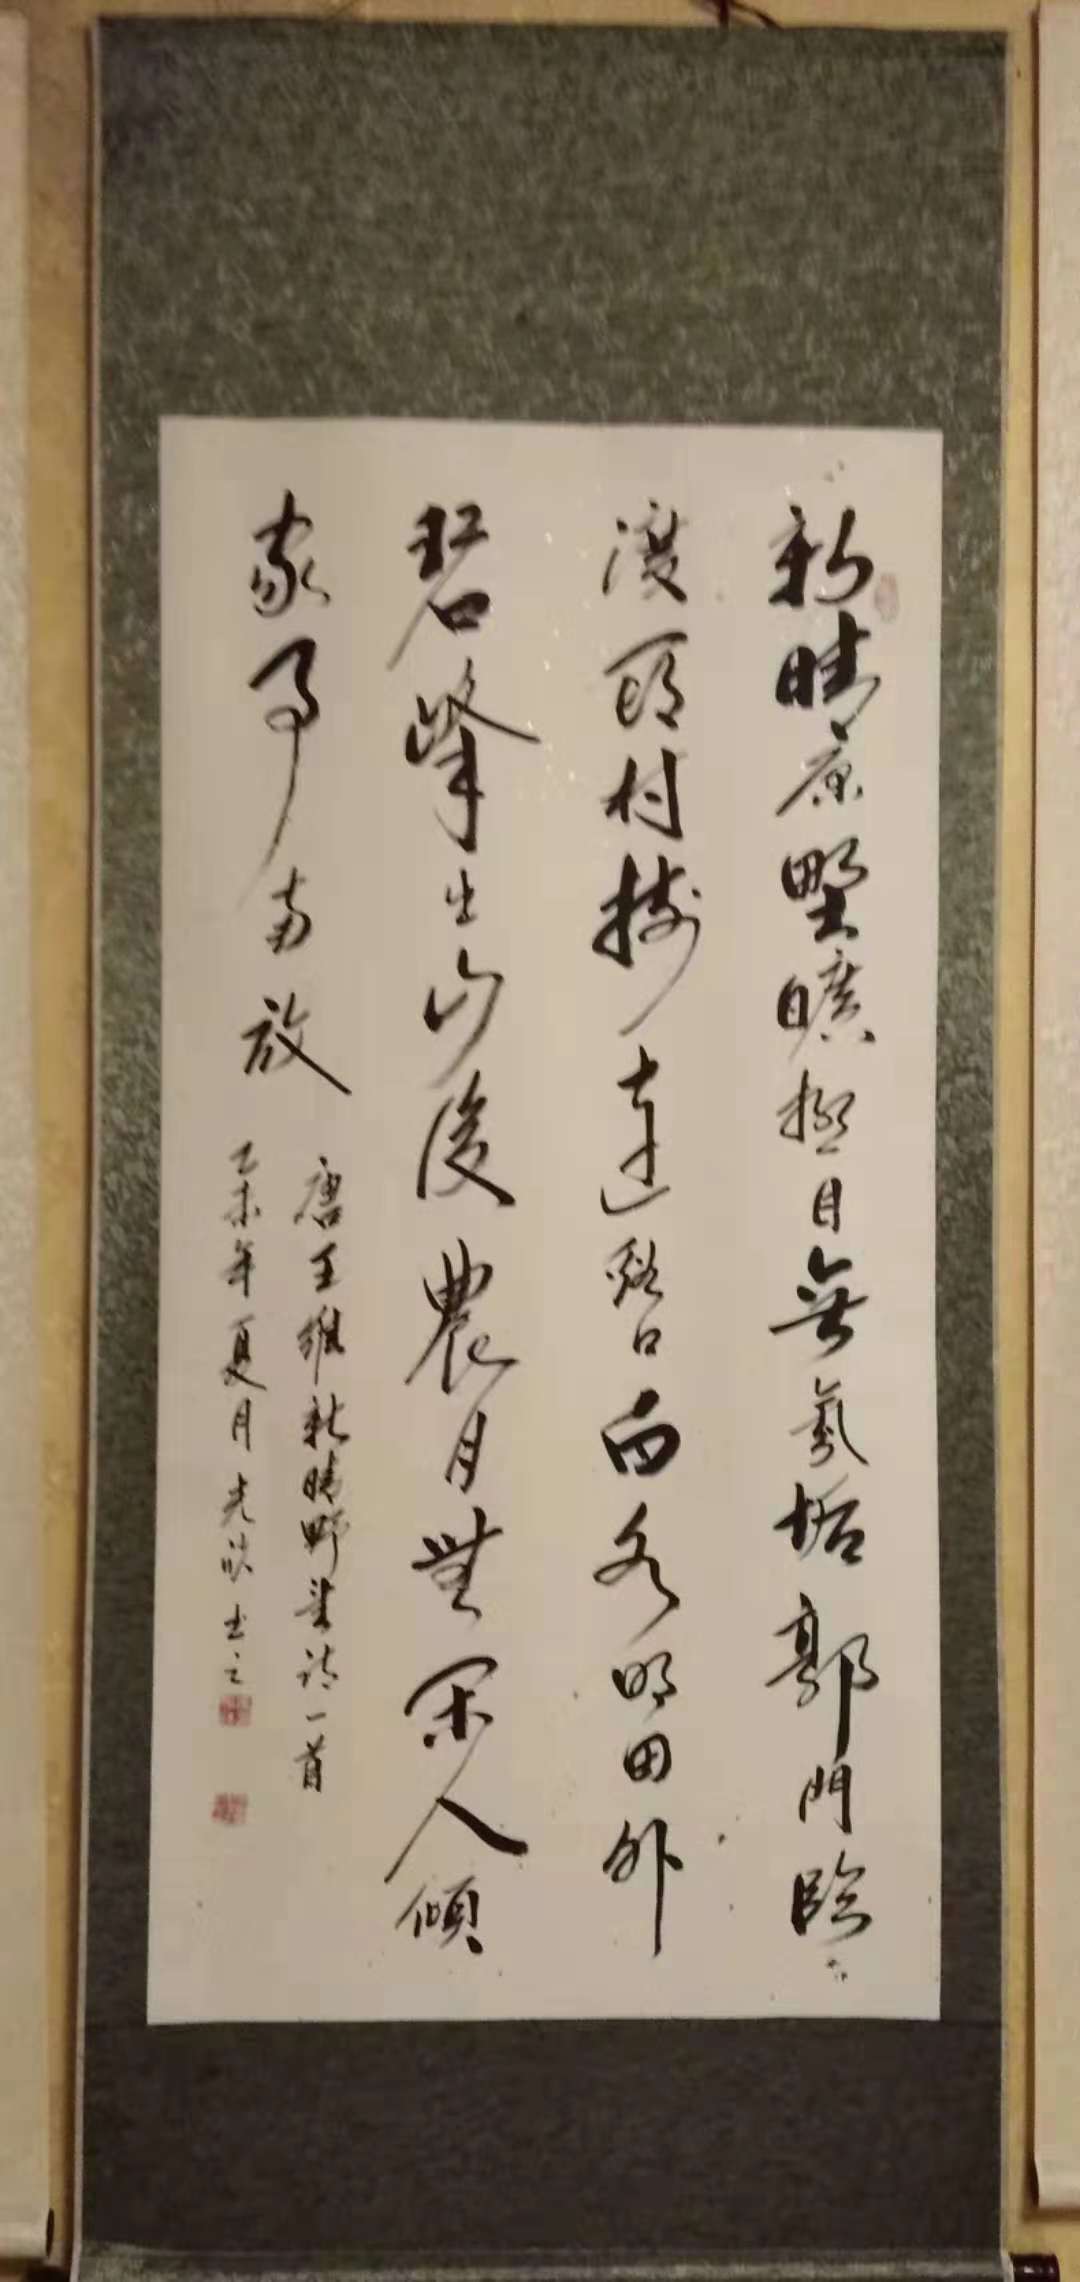 新晴原野曠極目無氛垢郭門臨
渡頭村樹連谿口白水明田外
碧峰出山後農月無閑人傾
家事南畝
唐王維新晴野望詩一首
乙未年夏月光欣书之